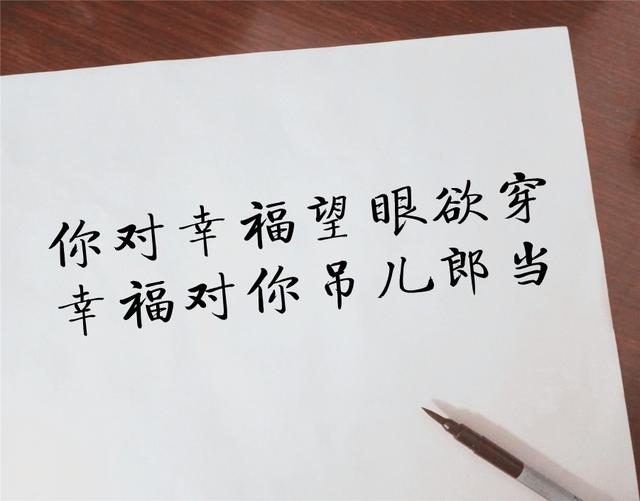 你对幸福望眼欲穿
幸福对你吊儿郎当